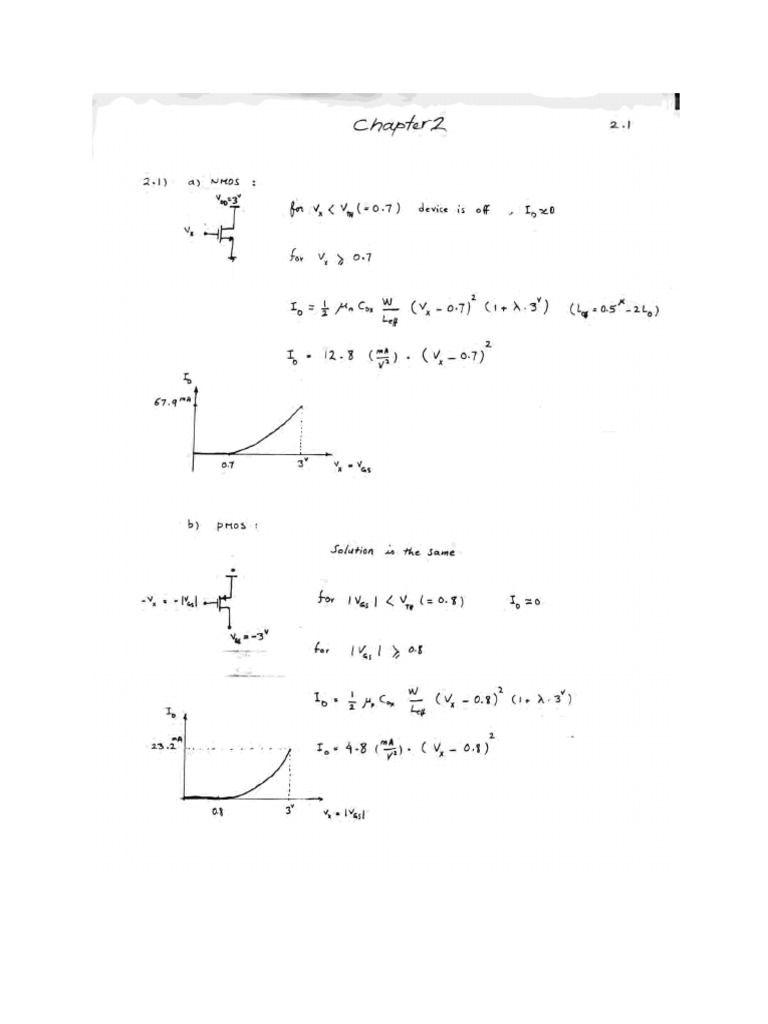 Chapter 2 2.1
2.1) a) NMOS :
V_DD=3^V
V_x
for V_x < V_TH (=0.7) device is off , I_D≈0
for V_x ⩾ 0.7
I_D = 1/2 μ_n C_ox W/L_eff (V_x - 0.7)^2 (1+ λ·3^V) (L_eff = 0.5^μ - 2L_D)
I_D = 12.8 (mA/V^2) · (V_x - 0.7)^2
I_D
67.9 mA
0.7 3^V V_x = V_GS
b) PMOS :
Solution is the same
-V_x = -|V_GS|
for |V_GS| < V_TH (= 0.8) I_D ≃ 0
-3^V
for |V_GS| ⩾ 0.8
I_D = 1/2 μ_p C_ox W/L_eff (V_x - 0.8)^2 (1+ λ·3^V)
I_D
23.2 mA
I_D = 4.8 (mA/V^2) · (V_x - 0.8)^2
0.8 3^V V_x = |V_GS|